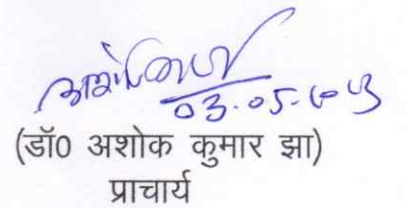 03.05.
(डॉ0 अशोक कुमार झा)
प्राचार्य